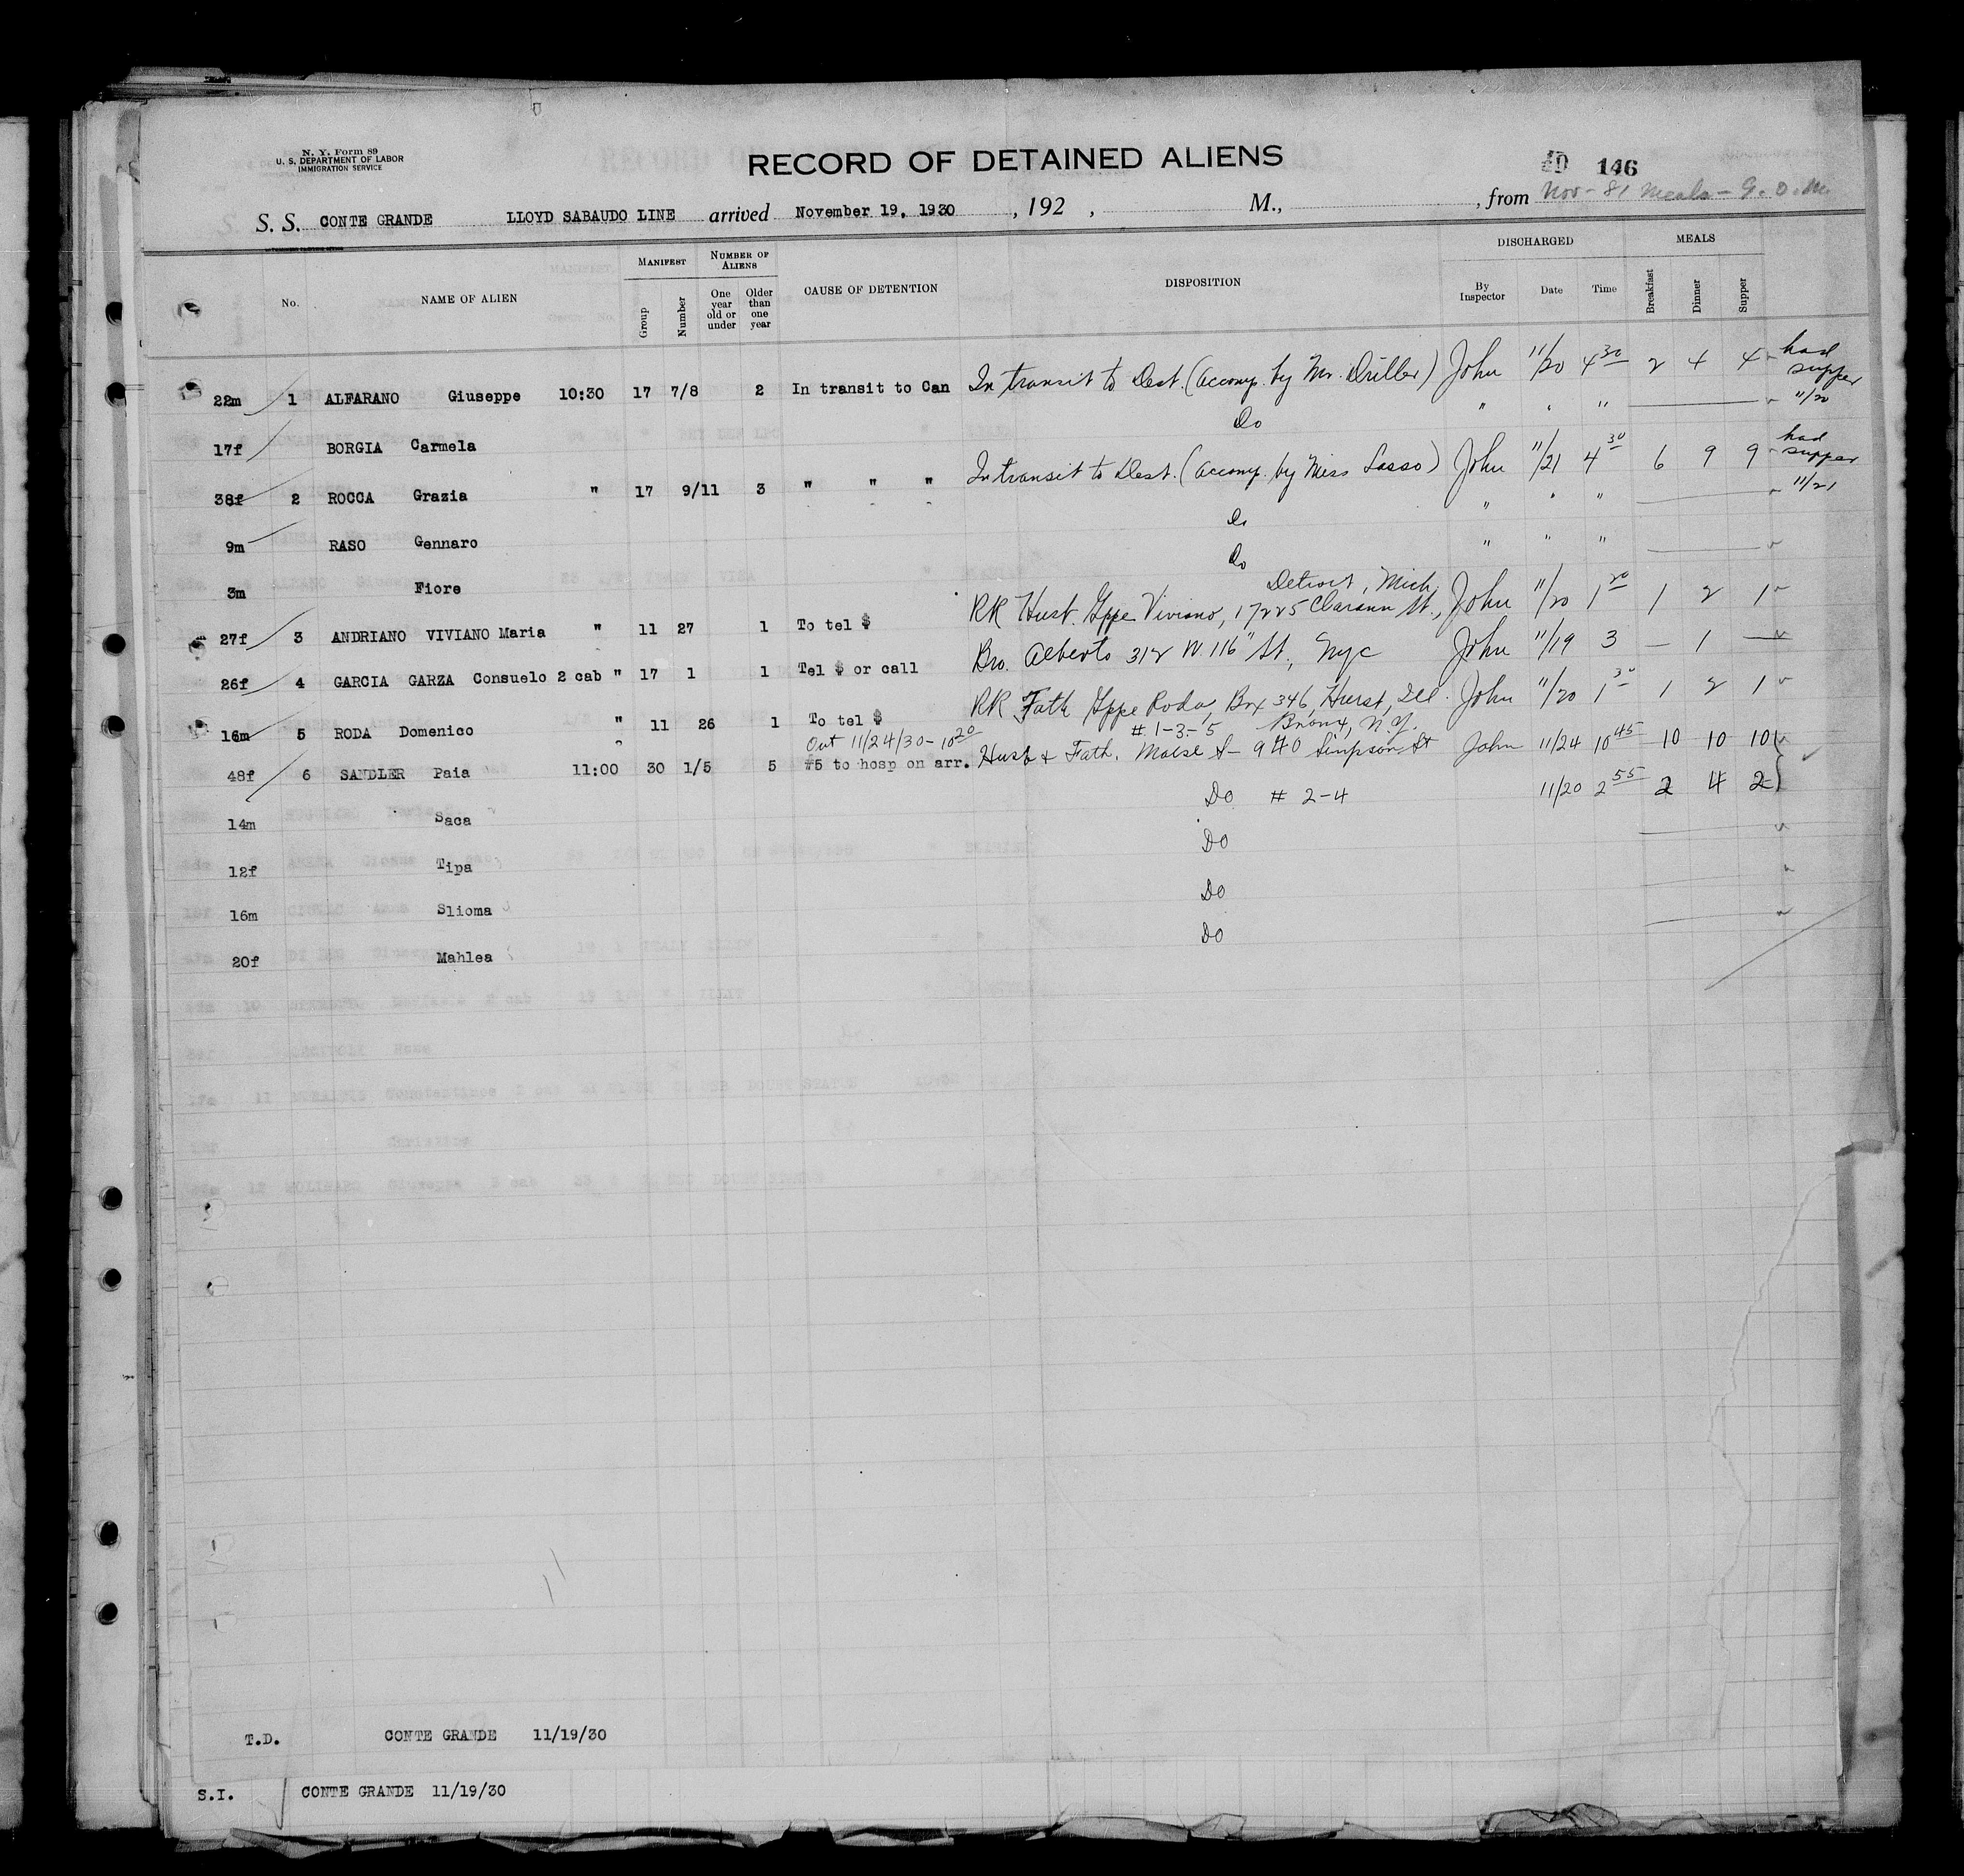 N. Y. Form 89
U. S. DEPARTMENT OF LABOR
IMMIGRATION SERVICE
RECORD OF DETAINED ALIENS
146
S. S. CONTE GRANDE LLOYD SABAUDO LINE arrived November 19, 1930 , 192 , M., , from Nov - 81 meals - G. O. M.
No. NAME OF ALIEN MANIFEST Group Number NUMBER OF ALIENS One year old or under Older than one year CAUSE OF DETENTION DISPOSITION DISCHARGED By Inspector Date Time MEALS Breakfast Dinner Supper
22m 1 ALFARANO Giuseppe 10:30 17 7/8 2 In transit to Can In transit to Dest. (accomp. by Mr. Driller) John 11/20 4 30 2 4 4 had supper 11/20
17f BORGIA Carmela Do " " "
38f 2 ROCCA Grazia " 17 9/11 3 " " " In transit to Dest. (accomp. by Miss Sasso) John 11/21 4 30 6 9 9 had supper 11/21
9m RASO Gennaro Do " " "
3m Fiore Do " " "
27f 3 ANDRIANO VIVIANO Maria " 11 27 1 To tel $ RR Husb. Gppe Viviano, 17225 Clarann St., Detroit, Mich. John 11/20 1 20 1 2 1
26f 4 GARCIA GARZA Consuelo 2 cab " 17 1 1 Tel $ or call Bro. Alberto 312 W. 116" St., Nyc John 11/19 3 — 1 —
16m 5 RODA Domenico " 11 26 1 To tel $ RR Fath Gppe Roda, Box 346, Hurst, Ill. John 11/20 1 30 1 2 1
Out 11/24/30 - 10 20 # 1-3-5 Bronx, N.Y.
48f 6 SANDLER Paia 11:00 30 1/5 5 #5 to hosp on arr. Husb & Fath. Moise S - 940 Simpson St John 11/24 10 45 10 10 10
14m Saca Do # 2-4 11/20 2 55 2 4 2
12f Tipa Do
16m Slioma Do
20f Mahlea Do
T.D. CONTE GRANDE 11/19/30
S.I. CONTE GRANDE 11/19/30